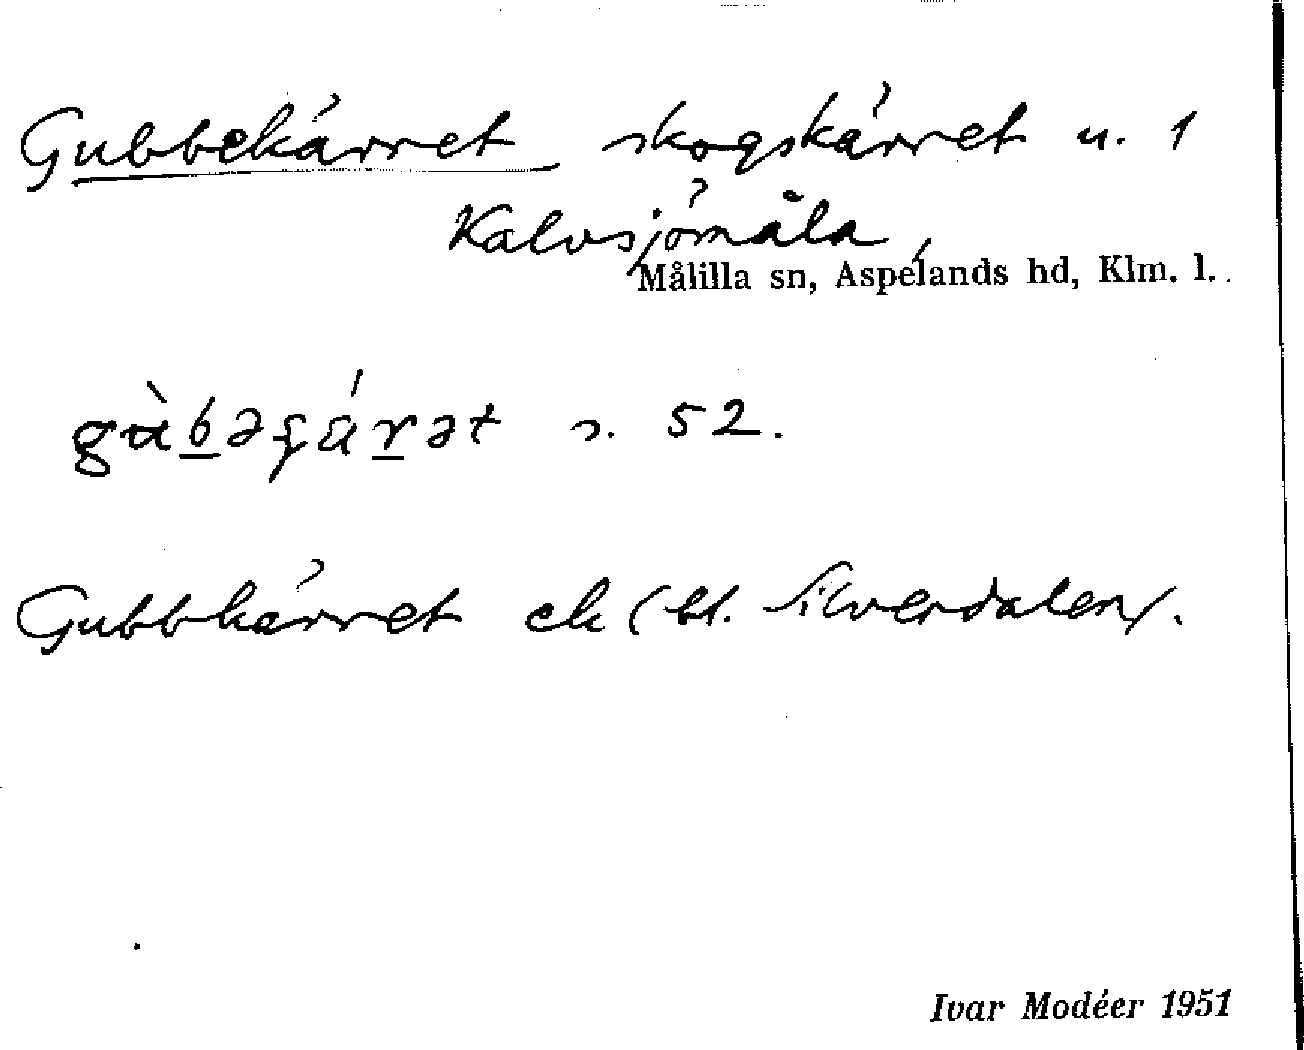 Gubbekärret skogskärret u. 1
Kalvsjömåla,
Målilla sn, Aspelands hd, Klm. l.
s. 52.
Gubbkärret ek (bl. Silverdalen).
Ivar Modéer 1951